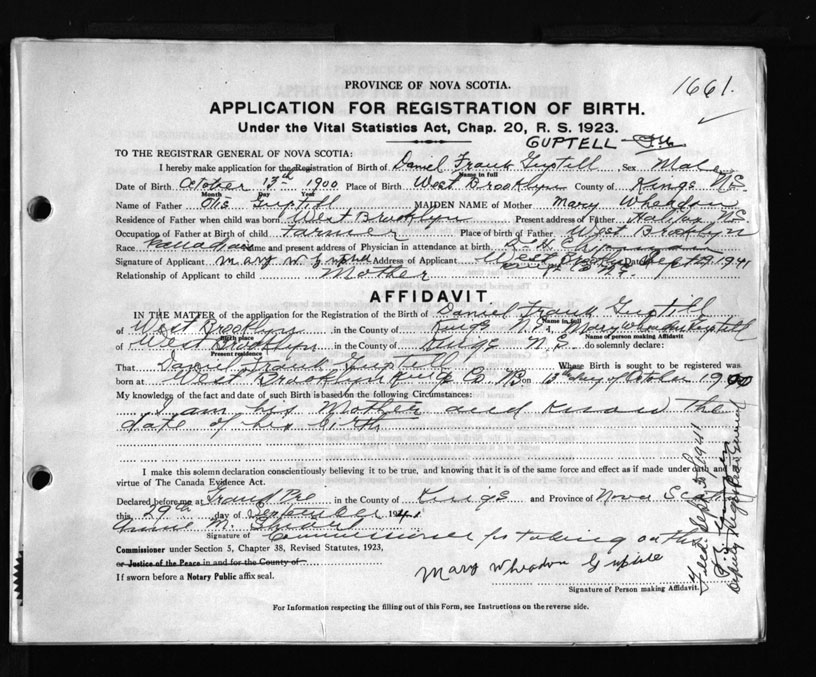 1661.
PROVINCE OF NOVA SCOTIA.
APPLICATION FOR REGISTRATION OF BIRTH.
Under the Vital Statistics Act, Chap. 20, R. S. 1923.
GUPTELL
TO THE REGISTRAR GENERAL OF NOVA SCOTIA:
I hereby make application for the Registration of Birth of Daniel Frank Guptill Sex Male
Name in full
Date of Birth October 13th 1900 Place of Birth West Brooklyn County of Kings N.S.
Month Day Year
Name of Father Otis Guptill MAIDEN NAME of Mother Mary Wheadon
Residence of Father when child was born West Brooklyn Present address of Father Halifax N.S.
Occupation of Father at Birth of child Farmer Place of birth of Father West Brooklyn
Race Canadian Name and present address of Physician in attendance at birth
Signature of Applicant Mary W. Guptill Address of Applicant West Brooklyn Date Sept 29, 1941
Kings Co N.S.
Relationship of Applicant to child Mother
AFFIDAVIT
IN THE MATTER of the application for the Registration of Birth of Daniel Frank Guptill
Name in full
of West Brooklyn in the County of Kings N.S. I, Mary Wheadon Guptill
Birth place Name of person making Affidavit
of West Brooklyn in the County of Kings N.S. do solemnly declare:
Present residence
That Daniel Frank Guptill Whose Birth is sought to be registered was
born at West Brooklyn Kings Co. NS on 13th day of October 1900
My knowledge of the fact and date of such Birth is based on the following Circumstances:
I am his Mother and know the
date of his birth
I make this solemn declaration conscientiously believing it to be true, and knowing that it is of the same force and effect as if made under oath and by
virtue of The Canada Evidence Act.
Declared before me at Grand Pre in the County of Kings and Province of Nova Scotia
this 29th day of September 1941
Annie M.
Signature of Commissioner for taking oaths
Commissioner under Section 5, Chapter 38, Revised Statutes, 1923,
or Justice of the Peace in and for the County of
If sworn before a Notary Public affix seal.
Mary Wheadon Guptill
Signature of Person making Affidavit.
For Information respecting the filling out of this Form, see Instructions on the reverse side.
Deputy Registrar General